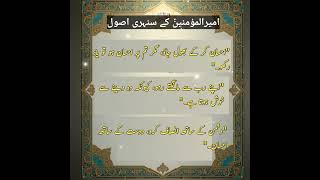 امیرالمؤمنینؑ کے سنہری اصول
"احسان کر کے بھول جاؤ، مگر تم پر احسان ہو تو یاد
رکھو۔"
"اپنے رب سے مانگتے رہو، کیونکہ وہ دینے سے
خوش ہوتا ہے۔"
"دشمن کے ساتھ انصاف کرو، دوست کے ساتھ